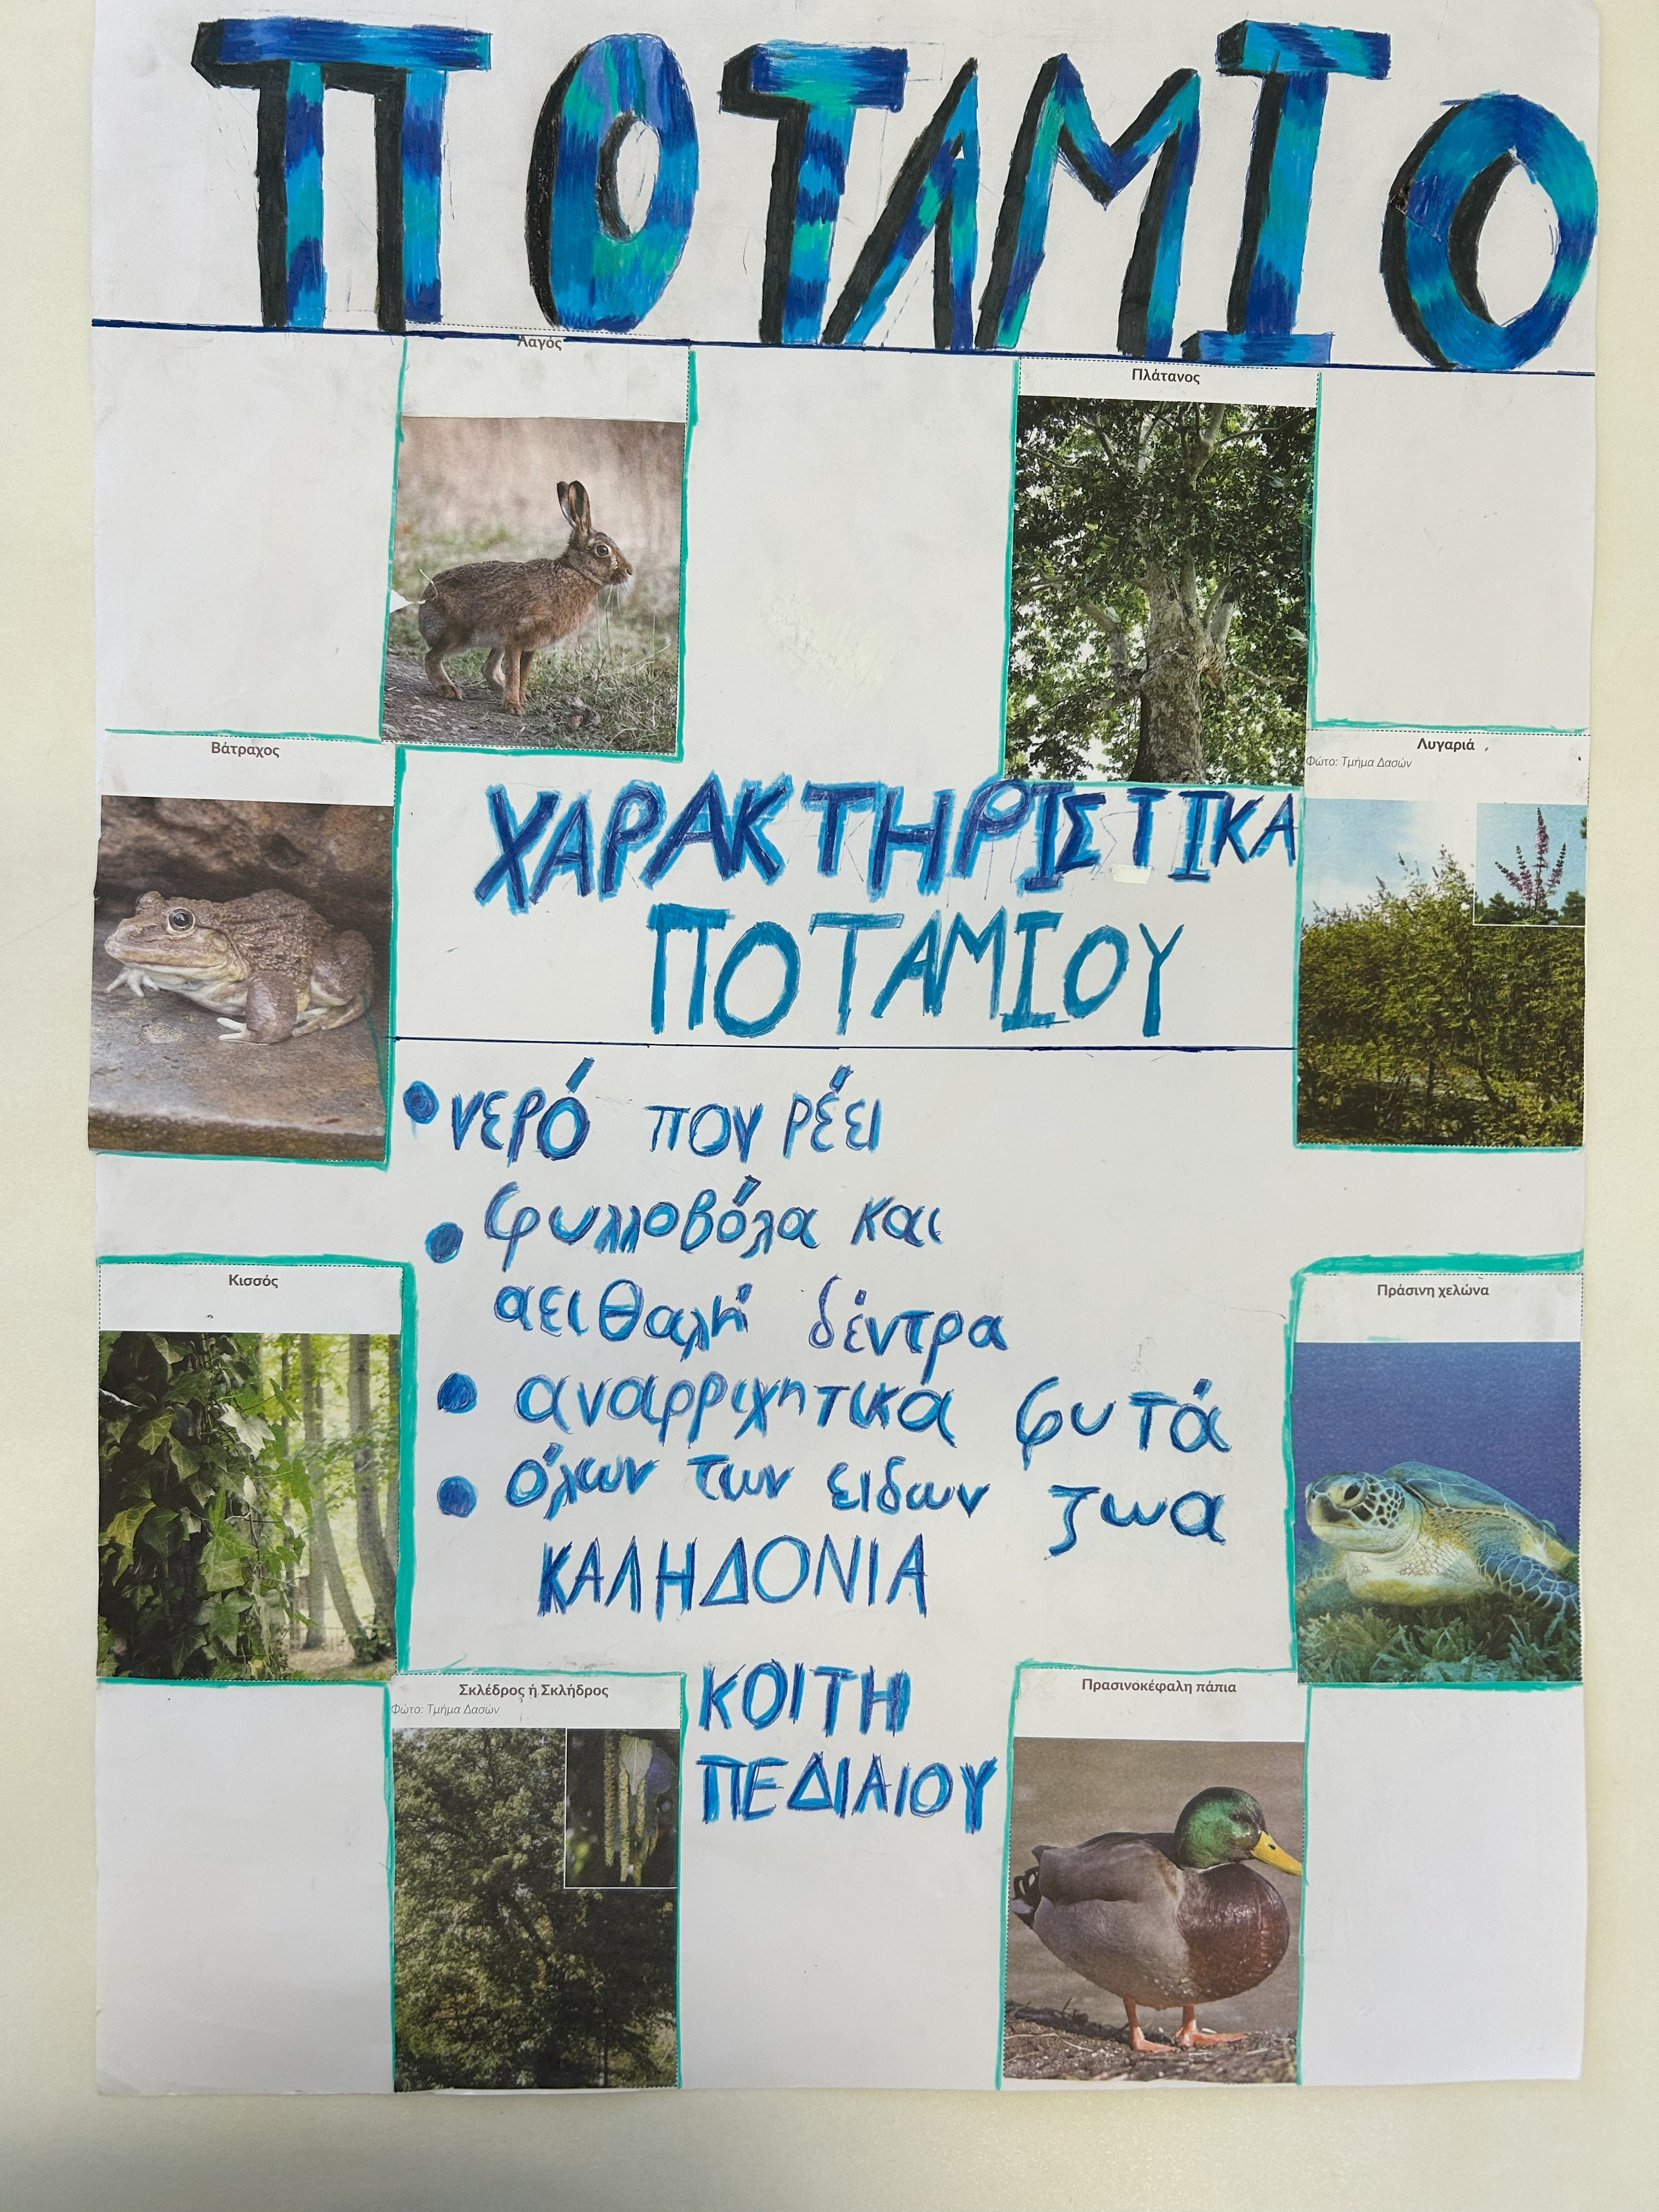 ΠΟΤΑΜΙΟ
Λαγός
Πλάτανος
Βάτραχος
Λυγαριά
Φώτο: Τμήμα Δασών
ΧΑΡΑΚΤΗΡΙΣΤΙΚΑ
ΠΟΤΑΜΙΟΥ
• νερό που ρέει
• φυλλοβόλα και
αειθαλή δέντρα
• αναρριχητικά φυτά
• όλων των ειδων ζωα
ΚΑΛΗΔΟΝΙΑ
ΚΟΙΤΗ
ΠΕΔΙΑΙΟΥ
Κισσός
Πράσινη χελώνα
Σκλέδρος ή Σκλήδρος
Φώτο: Τμήμα Δασών
Πρασινοκέφαλη πάπια